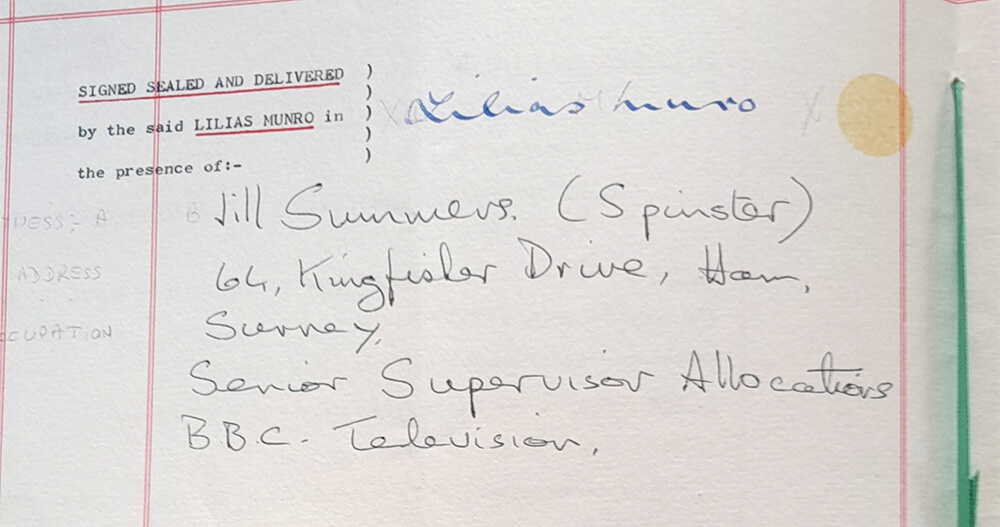 SIGNED SEALED AND DELIVERED )
)
by the said LILIAS MUNRO in ) x Lilias Munro x
)
the presence of:- )
NESS:- A B Jill Summers. (Spinster)
ADDRESS 64, Kingfisher Drive, Ham,
CUPATION Surrey,
Senior Supervisor Allocations
B.B.C. Television,